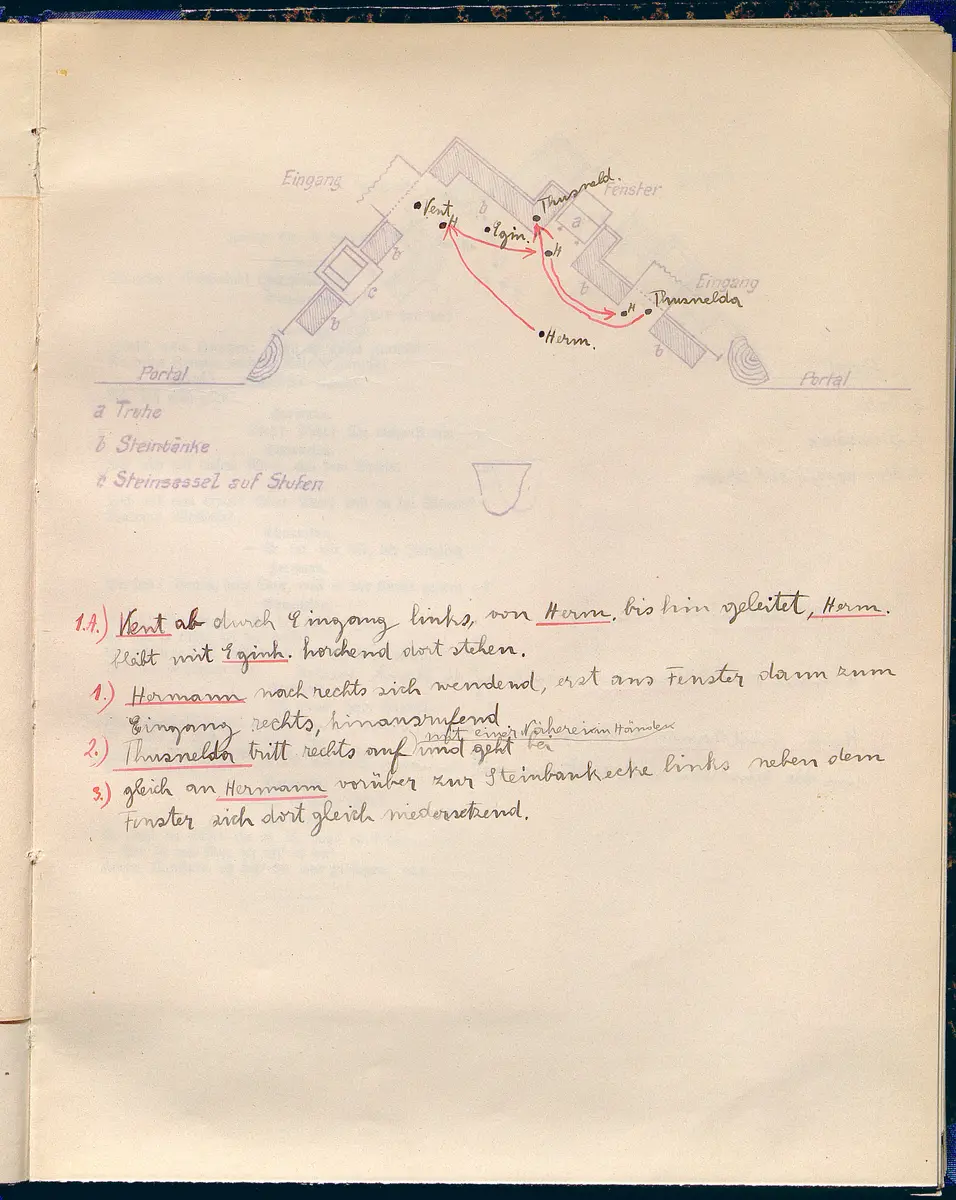 Eingang
Thusneld.
Fenster
Vent
H
b
Egin.
a
b
H
c
b
Eingang
b
H
Thusnelda
Herm.
b
Portal
Portal
a Truhe
b Steinbänke
c Steinsessel auf Stufen
1.A.) Vent ab durch Eingang links, von Herm. bis hin geleitet, Herm.
bleibt mit Eginh. horchend dort stehen.
1.) Hermann nach rechts sich wendend, erst ans Fenster dann zum
Eingang rechts, hinausrufend.
mit einer Näherei in Händen
2.) Thusnelda tritt rechts auf) und geht bei
3.) gleich an Hermann vorüber zur Steinbankecke links neben dem
Fenster sich dort gleich niedersetzend.